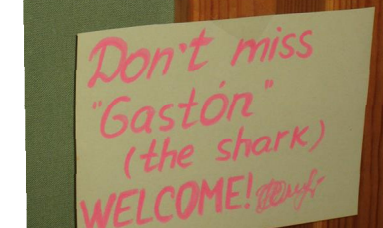 Don't miss
"Gastón"
(the shark)
WELCOME!